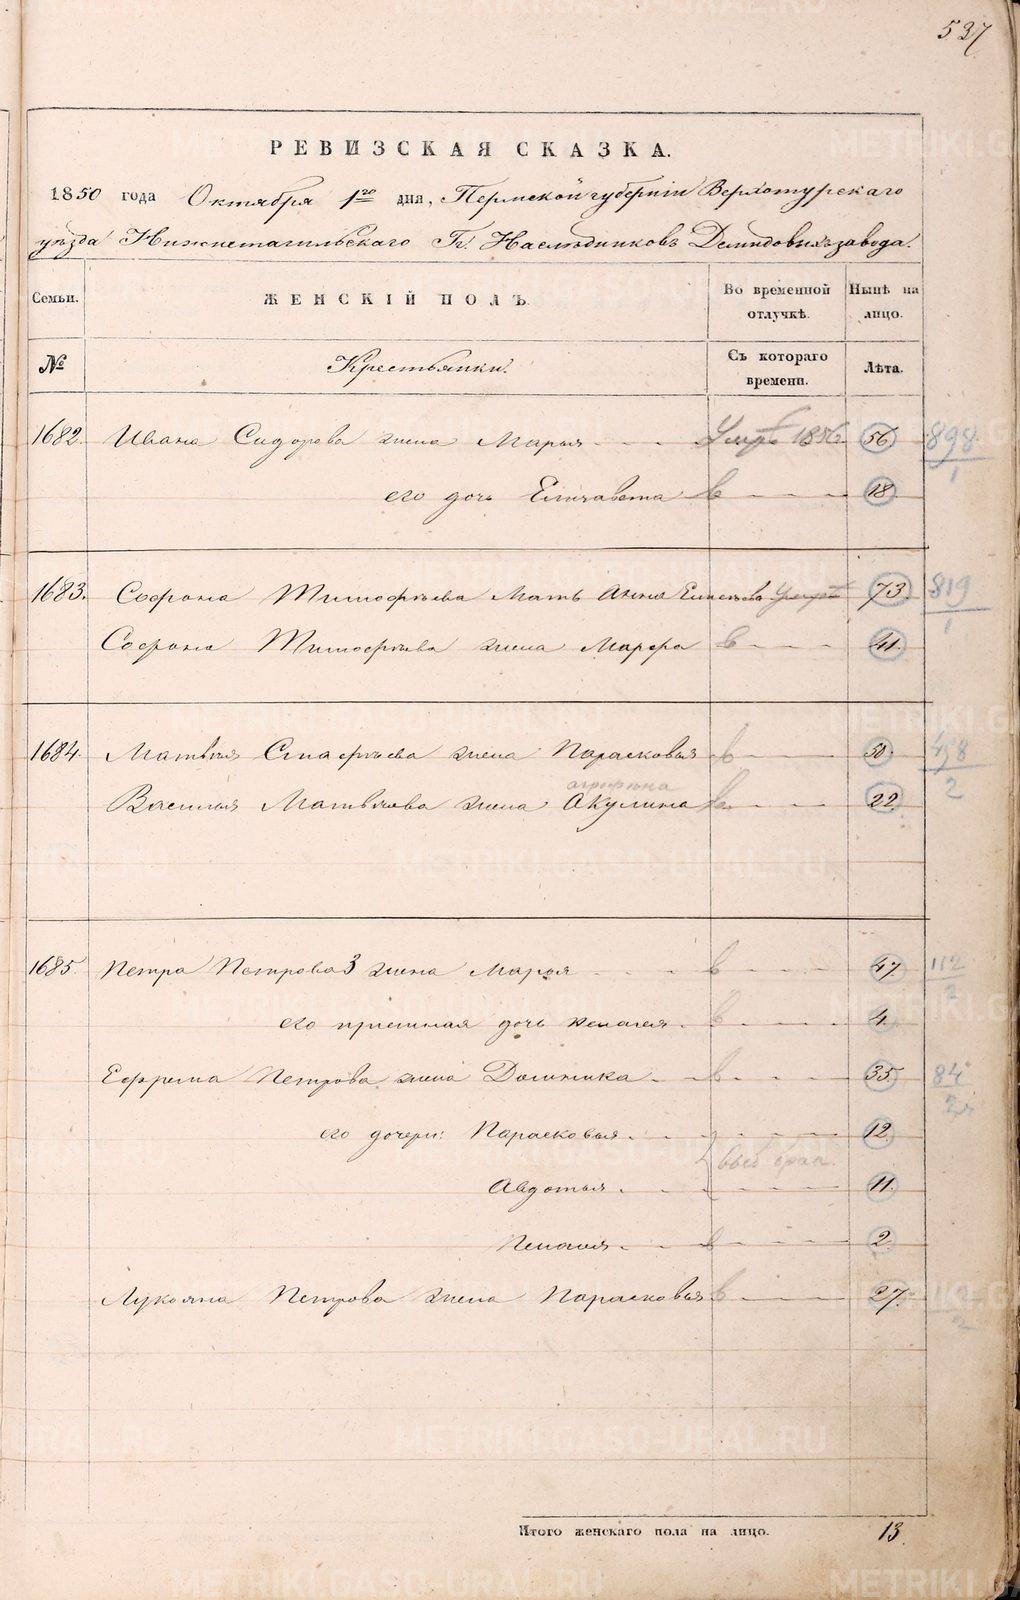 537
РЕВИЗСКАЯ СКАЗКА.
1850 года Октября 1го дня, Пермской губернiи Верхотурскаго
уѣзда Нижнетагильскаго Гг. Наслѣдниковъ Демидовыхъ завода.
Семьи. ЖЕНСКIЙ ПОЛЪ. Во временной отлучкѣ. Нынѣ на лицо.
№ Крестьянки. Съ котораго времени. Лѣта.
1682. Ивана Сидорова жена Марья Умрѣ 1856 56 898/1
его дочь Елизавета в 18
1683. Софрона Тимофѣева Мать Анна 73. 819/1
Софрона Тимофѣева жена Марфа в 41.
1684. Матвѣя жена Парасковья в 50. 458/2
агрифена
Василья Матвѣева жена Акулина в 22.
1685. Петра Петрова 3 жена Марья в 47. 112/2
его прiемная дочь Пелагея в 4.
Ефрема Петрова жена Домника в 35. 84/2
его дочери: Парасковья 12.
Авдотья 11.
Пелагея в 2.
Лукояна Петрова жена Парасковья в 27.
Итого женскаго пола на лицо. 13
METRIKI.GASO-URAL.RU